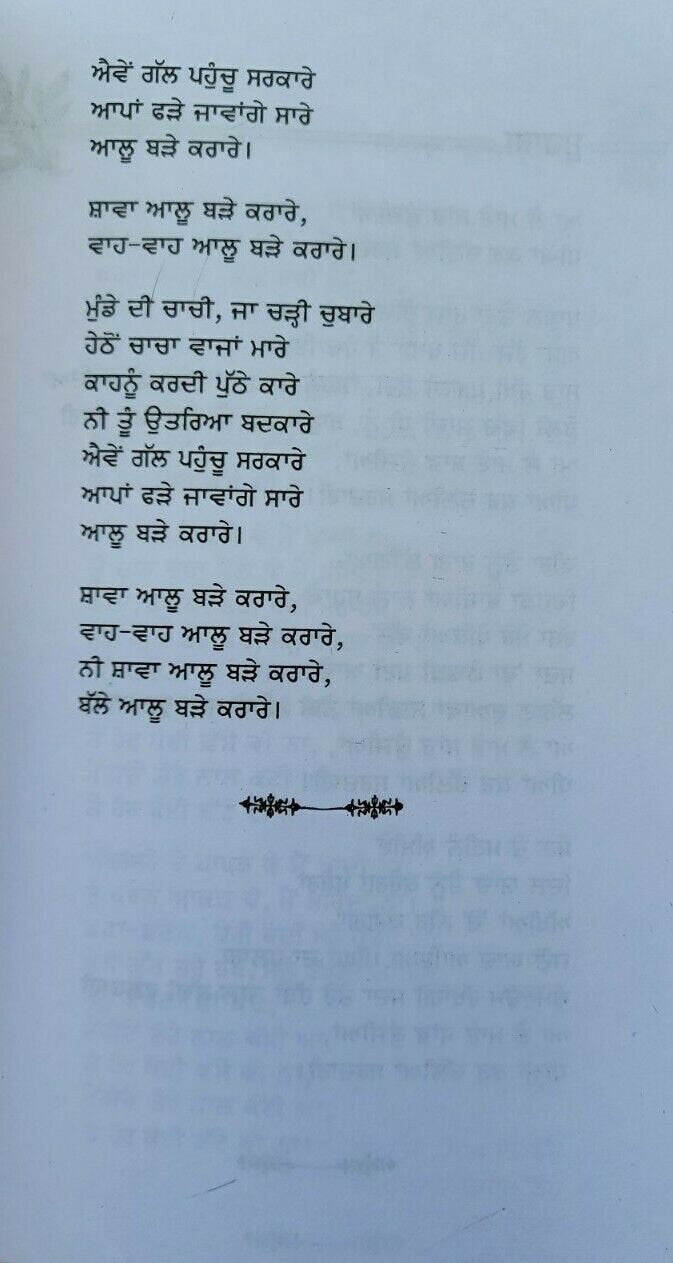 ਐਵੇਂ ਗੱਲ ਪਹੁੰਚੂ ਸਰਕਾਰੇ
ਆਪਾਂ ਫੜੇ ਜਾਵਾਂਗੇ ਸਾਰੇ
ਆਲੂ ਬੜੇ ਕਰਾਰੇ।
ਸ਼ਾਵਾ ਆਲੂ ਬੜੇ ਕਰਾਰੇ,
ਵਾਹ-ਵਾਹ ਆਲੂ ਬੜੇ ਕਰਾਰੇ।
ਮੁੰਡੇ ਦੀ ਚਾਚੀ, ਜਾ ਚੜ੍ਹੀ ਚੁਬਾਰੇ
ਹੇਠੋਂ ਚਾਚਾ ਵਾਜਾਂ ਮਾਰੇ
ਕਾਹਨੂੰ ਕਰਦੀ ਪੁੱਠੇ ਕਾਰੇ
ਨੀ ਤੂੰ ਉਤਰਿਆ ਬਦਕਾਰੇ
ਐਵੇਂ ਗੱਲ ਪਹੁੰਚੂ ਸਰਕਾਰੇ
ਆਪਾਂ ਫੜੇ ਜਾਵਾਂਗੇ ਸਾਰੇ
ਆਲੂ ਬੜੇ ਕਰਾਰੇ।
ਸ਼ਾਵਾ ਆਲੂ ਬੜੇ ਕਰਾਰੇ,
ਵਾਹ-ਵਾਹ ਆਲੂ ਬੜੇ ਕਰਾਰੇ,
ਨੀ ਸ਼ਾਵਾ ਆਲੂ ਬੜੇ ਕਰਾਰੇ,
ਬੱਲੇ ਆਲੂ ਬੜੇ ਕਰਾਰੇ।